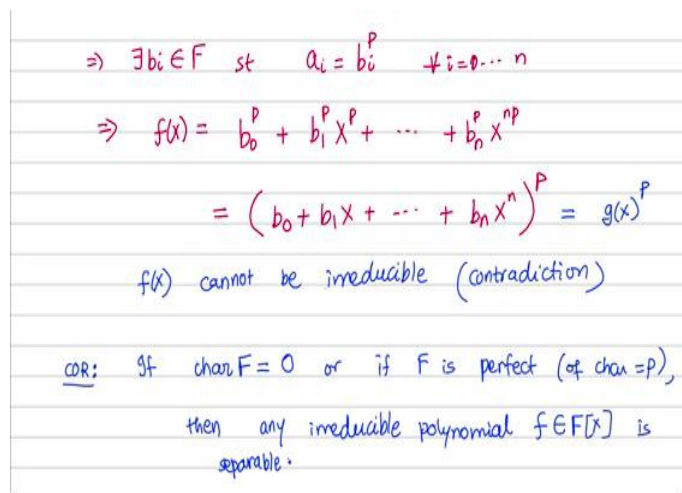 ⇒ ∃bi ∈ F st aᵢ = bᵢᵖ ∀ i=0... n
⇒ f(x) = b₀ᵖ + b₁ᵖ xᵖ + ... + bₙᵖ xⁿᵖ
= (b₀ + b₁x + ... + bₙxⁿ)ᵖ = g(x)ᵖ
f(x) cannot be irreducible (contradiction)
COR: If char F = 0 or if F is perfect (of char =p),
then any irreducible polynomial f ∈ F[x] is
separable.